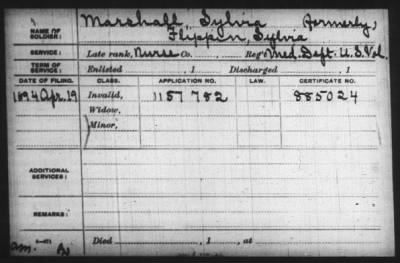 NAME OF SOLDIER: Marshall, Sylvia (formerly,
Flippin, Sylvia
SERVICE: Late rank, Nurse Co. , Reg't Med. Dept. U.S. Vol.
TERM OF SERVICE: Enlisted , 1 Discharged , 1
DATE OF FILING. CLASS. APPLICATION NO. LAW. CERTIFICATE NO.
1894 Apr. 19 Invalid, 1157782 885024
Widow,
Minor,
ADDITIONAL SERVICES:
REMARKS:
Died , 1 , at